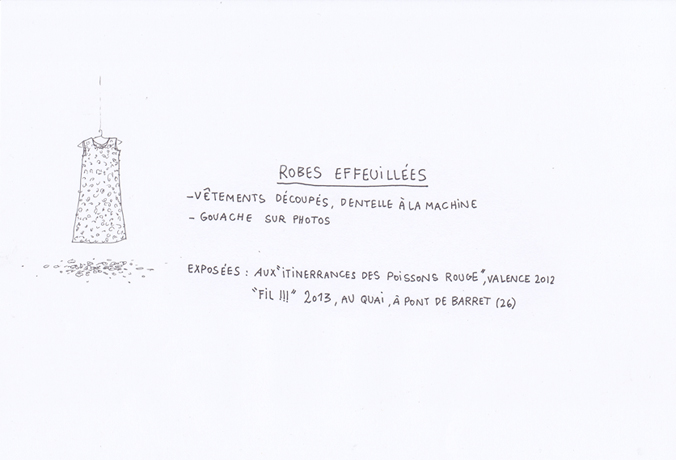 ROBES EFFEUILLÉES
-VÊTEMENTS DÉCOUPÉS, DENTELLE À LA MACHINE
- GOUACHE SUR PHOTOS
EXPOSÉES : AUX "ITINERRANCES DES POISSONS ROUGE", VALENCE 2012
"FIL !!!" 2013, AU QUAI, À PONT DE BARRET (26)